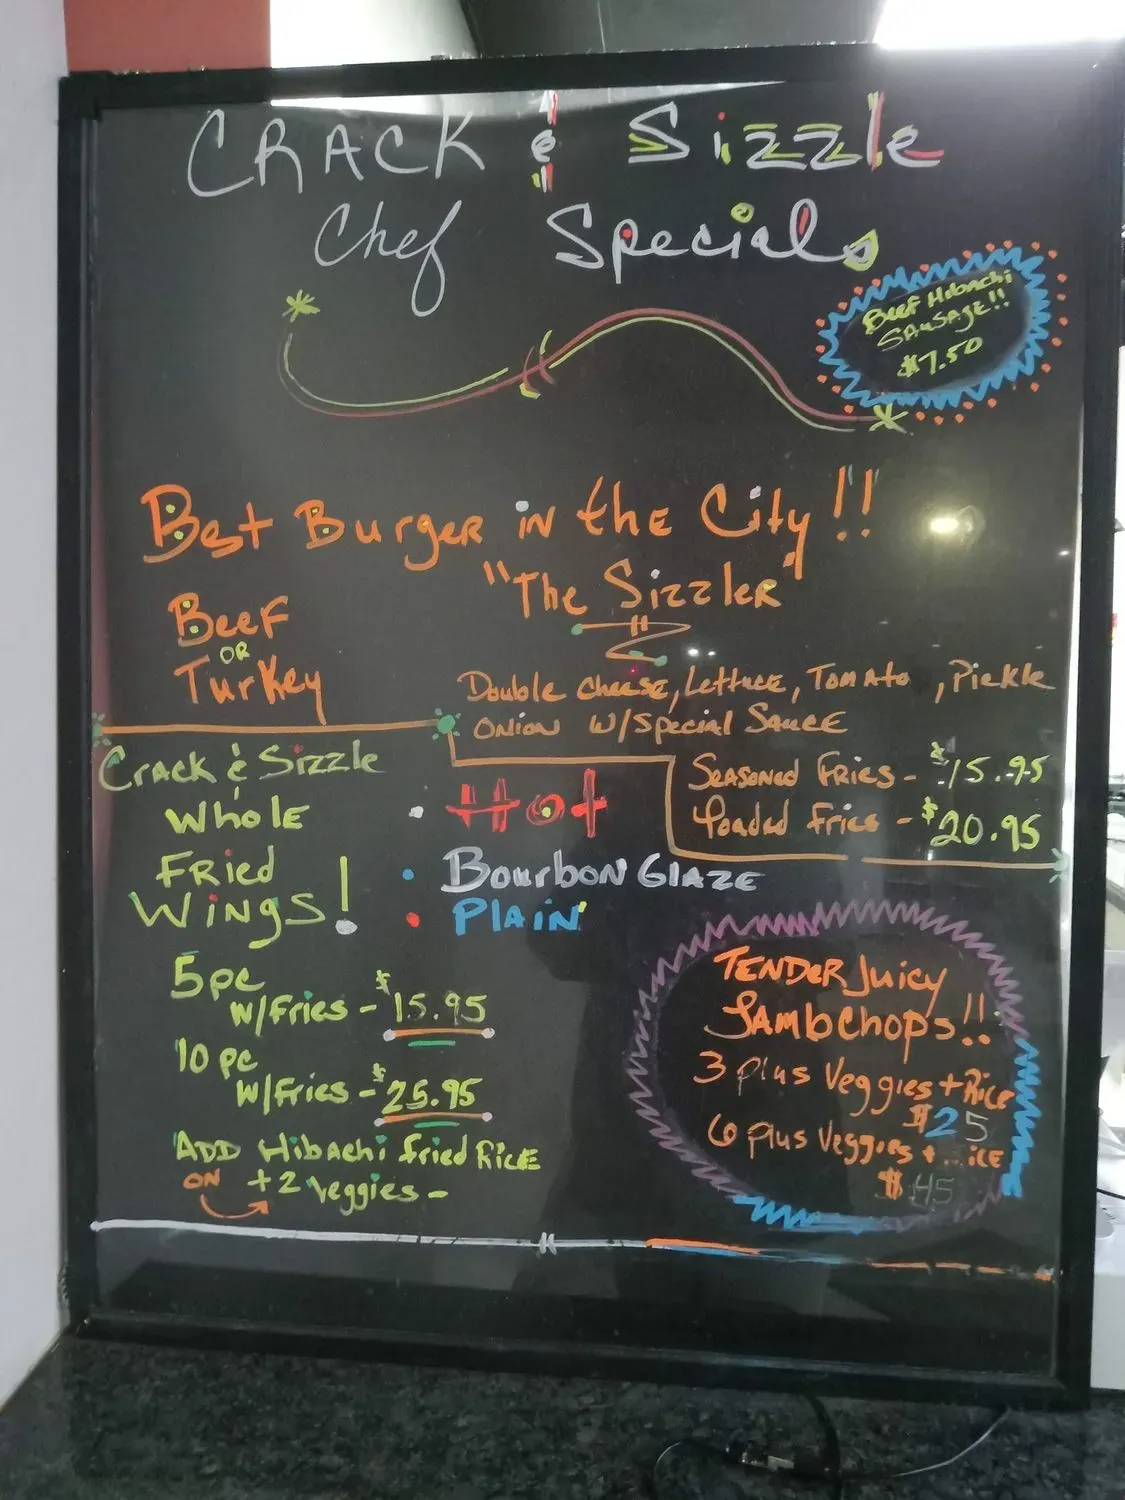 CRACK & Sizzle
Chef Specials
BEEF Hibachi
SAUSAGE!!
$7.50
Best Burger in the City!!
"The Sizzler"
Beef
OR
Turkey
Double cheese, Lettuce, Tomato, Pickle
Onion w/Special Sauce
Seasoned Fries - $15.95
Loaded Fries - $20.95
Crack & Sizzle
Whole
Fried
Wings!
• Hot
• Bourbon Glaze
• Plain
5pc
w/Fries - $15.95
10 pc
w/Fries - $25.95
ADD Hibachi fried Rice
ON +2 Veggies -
TENDER Juicy
Lambchops!!
3 plus Veggies + Rice
$25
6 plus Veggies +
$45